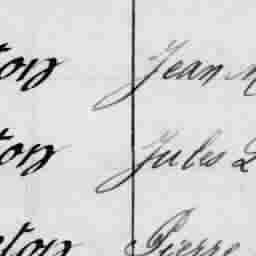 ton Jean M
ton Jules L
eton Pierre